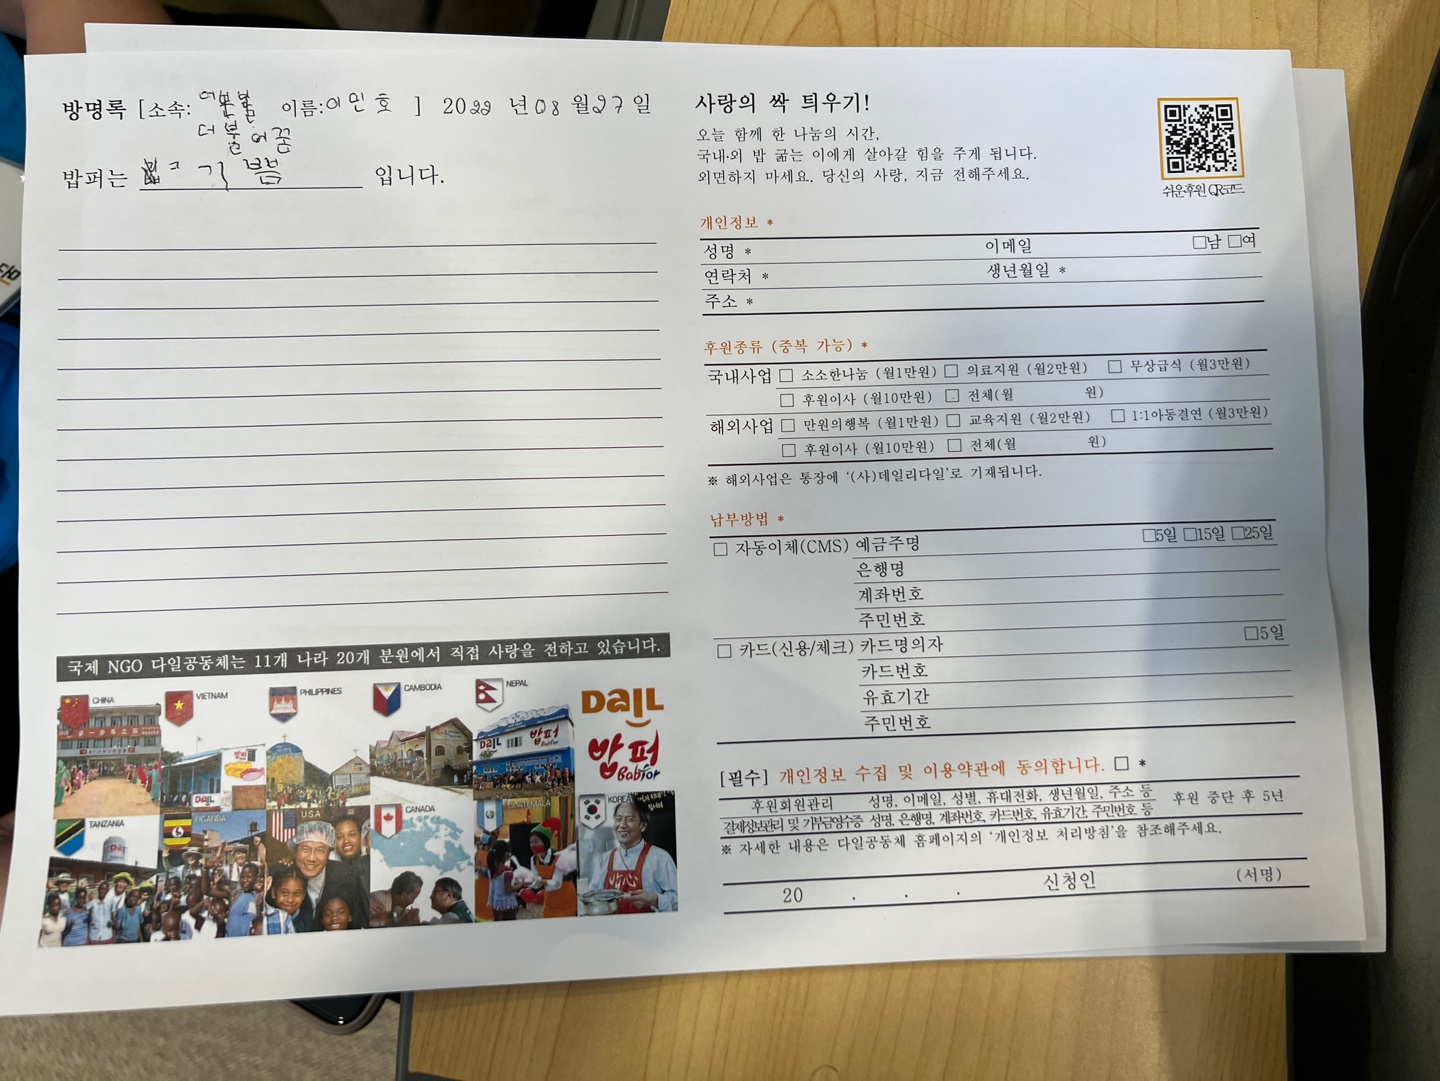 방명록 [소속: 더불어꿈 이름:이민호 ] 2022 년 08 월 27 일
밥퍼는 기쁨 입니다.
국제 NGO 다일공동체는 11개 나라 20개 분원에서 직접 사랑을 전하고 있습니다.
CHINA VIETNAM PHILIPPINES CAMBODIA NEPAL
DaiL
밥퍼
Babfor
TANZANIA UGANDA U.S.A CANADA GUATEMALA KOREA
사랑의 싹 틔우기!
오늘 함께 한 나눔의 시간,
국내·외 밥 굶는 이에게 살아갈 힘을 주게 됩니다.
외면하지 마세요. 당신의 사랑, 지금 전해주세요.
쉬운후원 QR코드
개인정보 *
성명 * 이메일 □남 □여
연락처 * 생년월일 *
주소 *
후원종류 (중복 가능) *
국내사업 □ 소소한나눔 (월1만원) □ 의료지원 (월2만원) □ 무상급식 (월3만원)
□ 후원이사 (월10만원) □ 전체(월 원)
해외사업 □ 만원의행복 (월1만원) □ 교육지원 (월2만원) □ 1:1아동결연 (월3만원)
□ 후원이사 (월10만원) □ 전체(월 원)
※ 해외사업은 통장에 '(사)데일리다일'로 기재됩니다.
납부방법 *
□ 자동이체(CMS) 예금주명 □5일 □15일 □25일
은행명
계좌번호
주민번호
□ 카드(신용/체크) 카드명의자 □5일
카드번호
유효기간
주민번호
[필수] 개인정보 수집 및 이용약관에 동의합니다. □ *
후원회원관리 성명, 이메일, 성별, 휴대전화, 생년월일, 주소 등 후원 중단 후 5년
결제정보관리 및 기부금영수증 성명, 은행명, 계좌번호, 카드번호, 유효기간, 주민번호 등
※ 자세한 내용은 다일공동체 홈페이지의 '개인정보 처리방침'을 참조해주세요.
20 . . . 신청인 (서명)